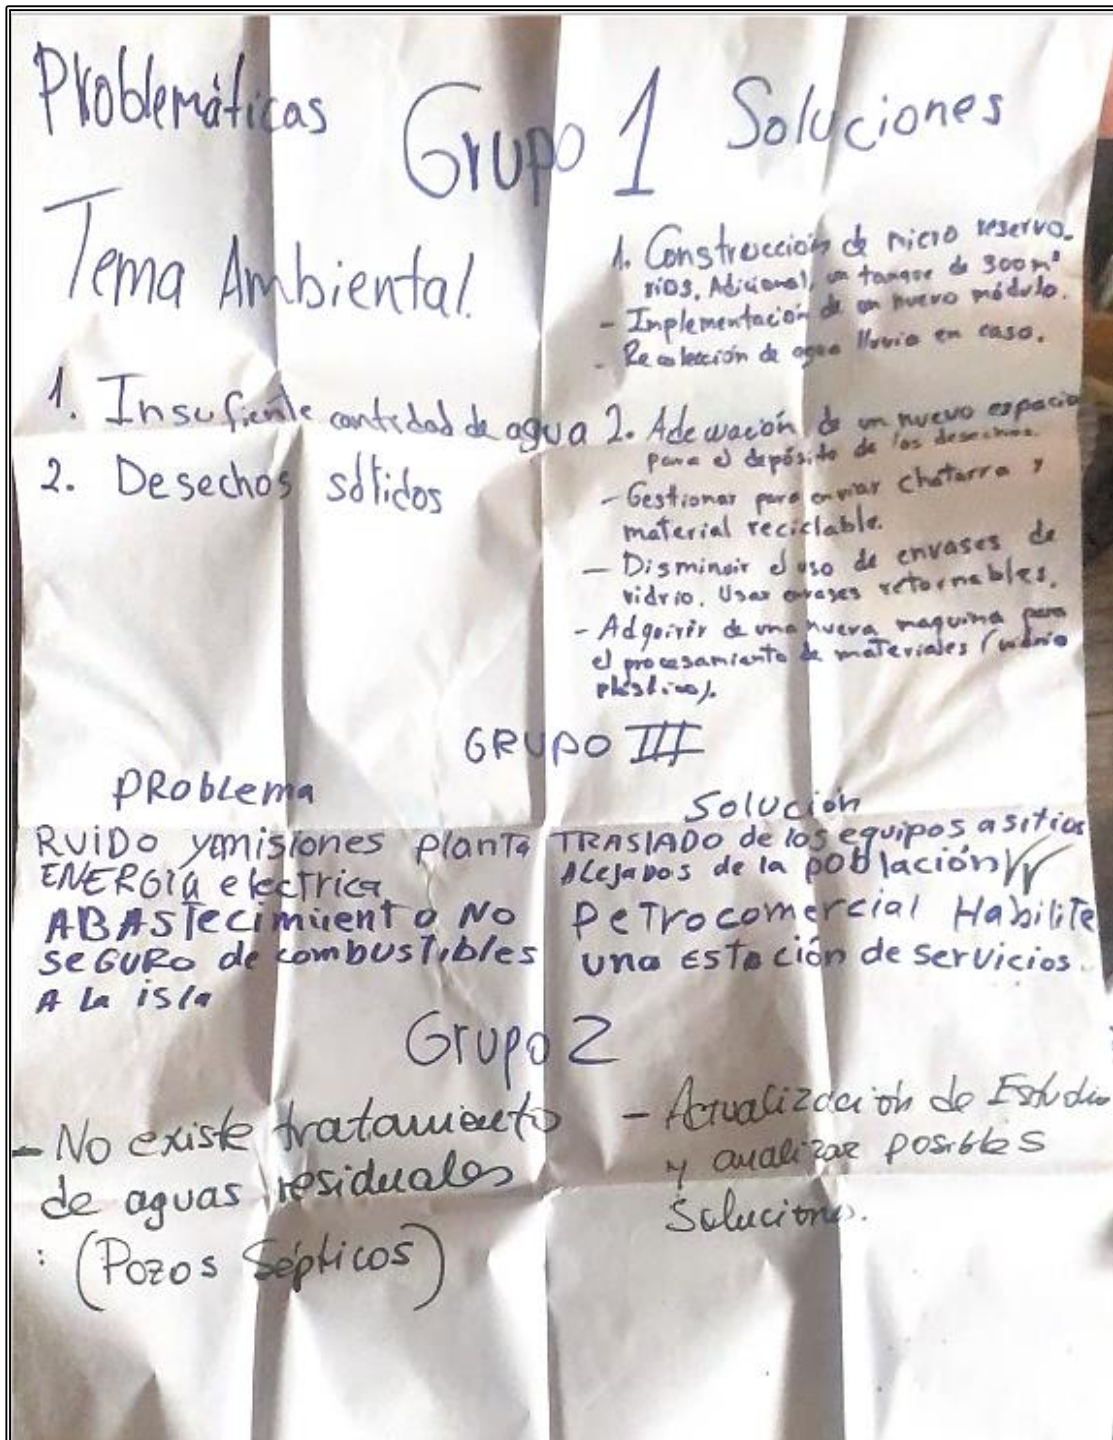 Problemáticas
Grupo 1
Soluciones
Tema Ambiental.
1. Insufiente cantidad de agua
2. Desechos sólidos
1. Construcción de micro reservo-
rios. Adicional, un tanque de 300 m³
- Implementación de un nuevo módulo.
- Recolección de agua lluvia en casa.
2. Adecuación de un nuevo espacio
para el depósito de los desechos.
- Gestionar para enviar chatarra y
material reciclable.
- Disminuir el uso de envases de
vidrio. Usar envases retornables.
- Adquirir de una nueva maquina para
el procesamiento de materiales (vidrio
plástico).
GRUPO III
PRoblema
RUIDO y emisiones planta
ENERGIA electrica
ABASTecimiento No
SEGURO de combustibles
A La isla
Solución
TRASLADO de los equipos a sitios
ALejados de la población
PeTrocomercial Habilite
una Estación de servicios.
Grupo 2
- No existe tratamiento
de aguas residuales
: (Pozos Sépticos)
- Actualización de Estudio
y analizar posibles
Soluciones.